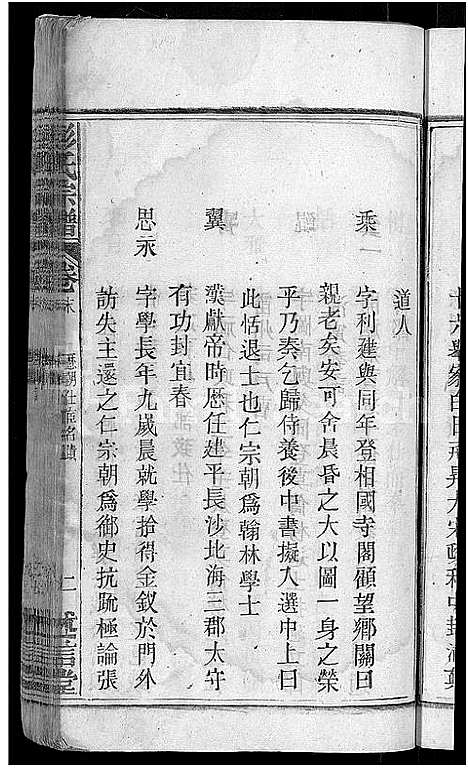 道人
乘 字利建與同年登相國寺閣顧望鄉關曰
親老矣安可舍晨昏之大以圖一身之榮
乎乃奏乞歸侍養後中書擬入選中上曰
此恬退士也仁宗朝為翰林學士
翼 漢獻帝時歷任建平長沙北海三郡太守
有功封宜春
思永 字學長年九歲晨就學拾得金釵於門外
訪失主還之仁宗朝為御史抗疏極論張
彭氏宗譜 卷末 歷朝仕宦名蹟